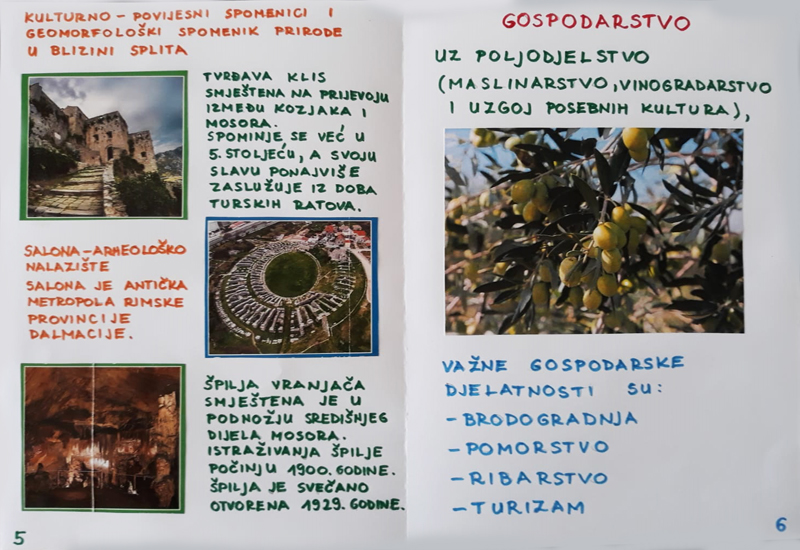 KULTURNO – POVIJESNI SPOMENICI I
GEOMORFOLOŠKI SPOMENIK PRIRODE
U BLIZINI SPLITA
TVRĐAVA KLIS
SMJEŠTENA NA PRIJEVOJU
IZMEĐU KOZJAKA I
MOSORA.
SPOMINJE SE VEĆ U
5. STOLJEĆU, A SVOJU
SLAVU PONAJVIŠE
ZASLUŽUJE IZ DOBA
TURSKIH RATOVA.
SALONA – ARHEOLOŠKO
NALAZIŠTE
SALONA JE ANTIČKA
METROPOLA RIMSKE
PROVINCIJE
DALMACIJE.
ŠPILJA VRANJAČA
SMJEŠTENA JE U
PODNOŽJU SREDIŠNJEG
DIJELA MOSORA.
ISTRAŽIVANJA ŠPILJE
POČINJU 1900. GODINE.
ŠPILJA JE SVEČANO
OTVORENA 1929. GODINE.
5
GOSPODARSTVO
UZ POLJODJELSTVO
(MASLINARSTVO, VINOGRADARSTVO
I UZGOJ POSEBNIH KULTURA),
VAŽNE GOSPODARSKE
DJELATNOSTI SU:
– BRODOGRADNJA
– POMORSTVO
– RIBARSTVO
– TURIZAM
6